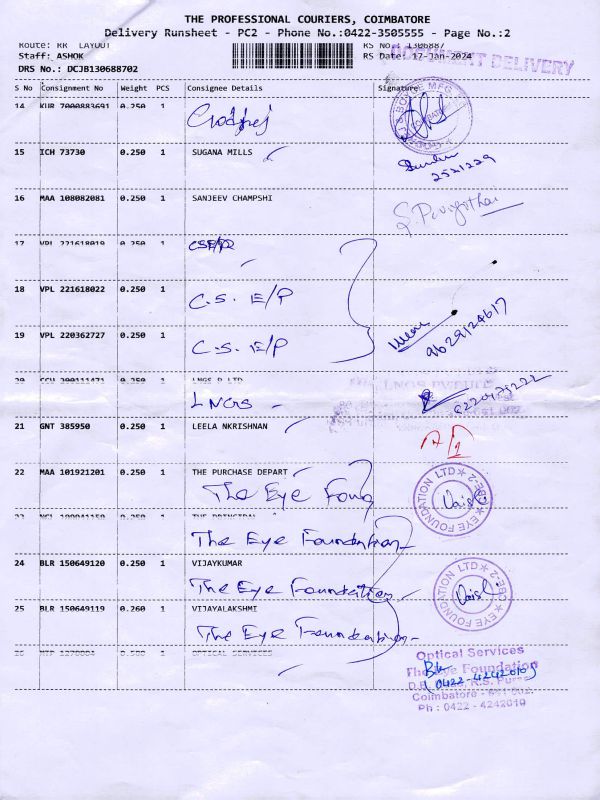 THE PROFESSIONAL COURIERS, COIMBATORE
Delivery Runsheet - PC2 - Phone No.:0422-3505555 - Page No.:2
Route: RR LAYOUT RS No: 1306887
Staff: ASHOK RS Date: 17-Jan-2024
DOCUMENT DELIVERY
DRS No.: DCJB130688702
S No Consignment No Weight PCS Consignee Details Signature
14 KUR 7000883691 0.250 1
Godrej
15 ICH 73730 0.250 1 SUGANA MILLS
2521229
16 MAA 108082081 0.250 1 SANJEEV CHAMPSHI
17 VPL 221618019 0.250 1
18 VPL 221618022 0.250 1
C.S. E/P
19 VPL 220362727 0.250 1
C.S. E/P
9629124617
20 CCU 200111471 0.250 1 LNGS P LTD
LNGS
21 GNT 385950 0.250 1 LEELA NKRISHNAN
22 MAA 101921201 0.250 1 THE PURCHASE DEPART
The Eye Foun
EYE FOUNDATION LTD CBE-2
The Eye Foundation
24 BLR 150649120 0.250 1 VIJAYKUMAR
The Eye Foundation
EYE FOUNDATION LTD CBE-2
25 BLR 150649119 0.260 1 VIJAYALAKSHMI
The Eye Foundation
26 0.500 1 OPTICAL SERVICES
Optical Services
The Eye Foundation
(0422-4242010)
Coimbatore - 641 002
Ph : 0422 - 4242019